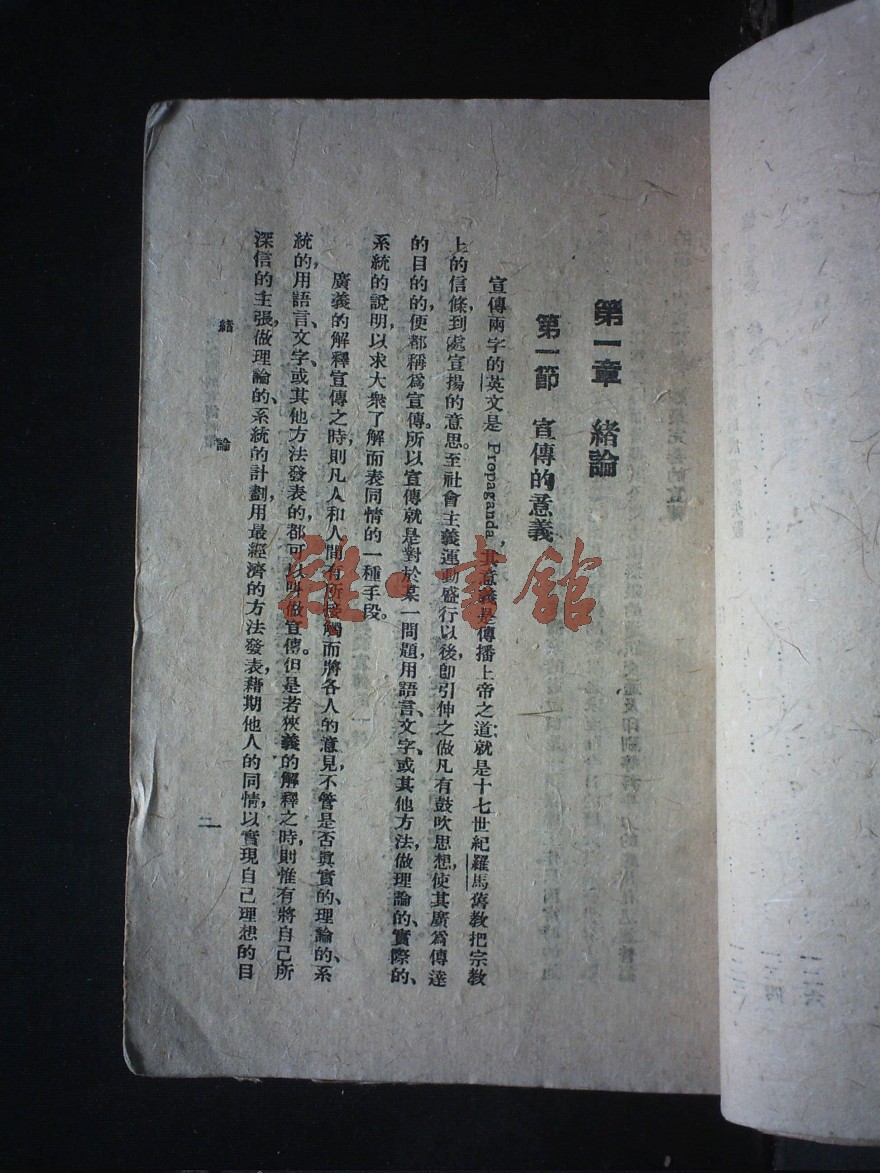 第一章　緒論
第一節　宣傳的意義
宣傳兩字的英文是 Propaganda，其意義是傳播上帝之道；就是十七世紀羅馬舊教把宗教
上的信條，到處宣揚的意思。至社會主義運動盛行以後，卽引伸之做凡有鼓吹思想，使其廣爲傳達
的目的的，便都稱爲宣傳。所以宣傳就是對於某一問題，用語言、文字、或其他方法，做理論的、實際的、
系統的說明，以求大衆了解而表同情的一種手段。
廣義的解釋宣傳之時，則凡人和人間有所接觸而將各人的意見，不管是否眞實的、理論的、系
統的，用語言、文字、或其他方法發表的，都可以叫做宣傳。但是若狹義的解釋之時，則惟有將自己所
深信的主張，做理論的、系統的計劃，用最經濟的方法發表，藉期他人的同情，以實現自己理想的目
緒論
一
雜·書館